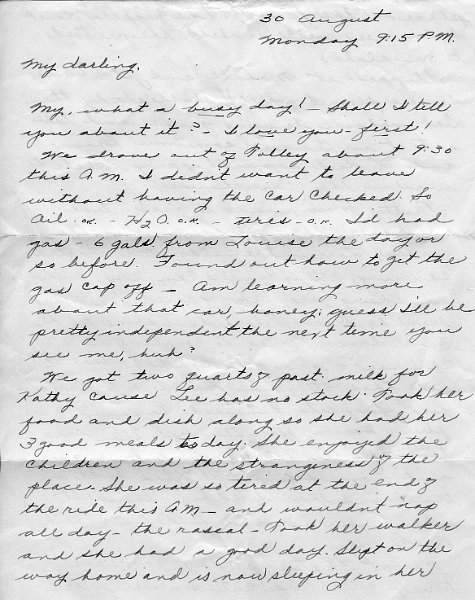 30 August
Monday 9:15 P.M.
My darling,
My, what a busy day! - Shall I tell
you about it? - I love you - first!
We drove out of Polley about 9:30
this A.M. I didn't want to leave
without having the car checked. So
Oil - o.k. - H2O o.k. - tires - o.k. I'd had
gas - 6 gals from Louise the day or
so before. Found out how to get the
gas cap off - Am learning more
about that car, honey; guess I'll be
pretty independent the next time you
see me, huh?
We got two quarts of past. milk for
Kathy cause Lee has no stock. Took her
food and dish along so she had her
3 good meals today. She enjoyed the
children and the strangeness of the
place. She was so tired at the end of
the ride this AM - and wouldn't nap
all day - the rascal - Took her walker
and she had a good day. Slept on the
way home and is now sleeping in her